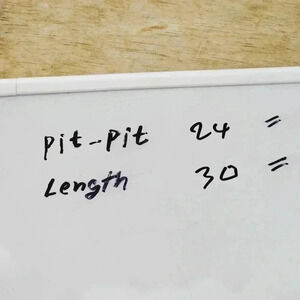 pit-pit 24 "
Length 30 "